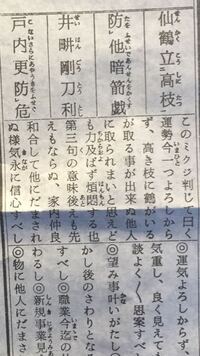 仙鶴立高枝
防他暗箭戯
井畊剛刀利
戸内更防危
このミクジ判じて曰く
運勢今一つよろしから
ず、高き枝に鶴がいる
が取る事が出来ぬ他人
に取られまいと思えど
も力及ばず煩悶する也
第三句の意味後えも先
えもならぬ、家内仲良
和合して他にだまされ
ぬ様気永に信心すべし
◎運気よろしからず、
気重し、良く見えて
談よく〱思案すべ
◎望み事叶いがたし
かし後のさわりとな
すべし◎職業今迄の
わるし◎新規事業見
◎物に他人にだまさ